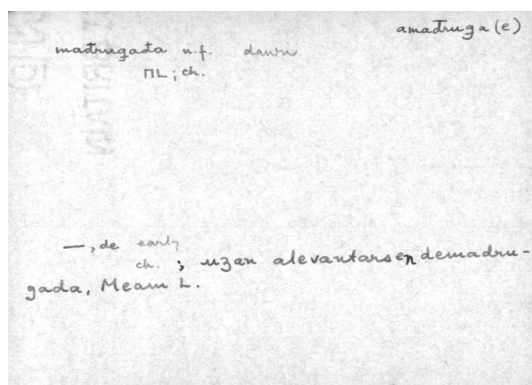 amađruga (e)
mađrugađa n.f. dawn
ΠL; ch.
—, de early
ch. ; uzan alevantarsen demadru-
gada, Meam L.